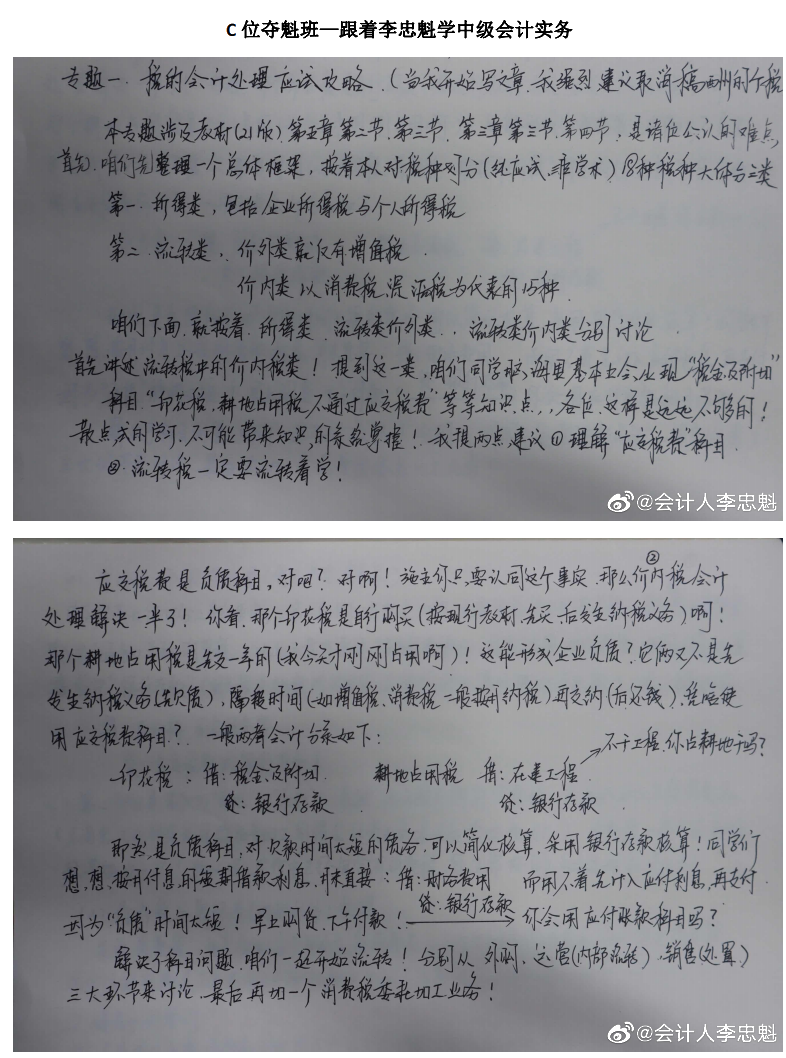 C位夺魁班—跟着李忠魁学中级会计实务
专题一. 税的会计处理应试攻略.(当我开始写文章.我强烈建议取消稿酬的个税
本专题涉及教材(21版).第五章第二节.第三节.第三章第三节.第四节,是诸位公认的难点
首先.咱们先整理一个总体框架,按着本人对税种划分(纯应试.非学术)18种税种大体分三类
第一.所得类,包括企业所得税与个人所得税
第二.流转类,价外类就仅有增值税.
价内类以消费税、资源税为代表的15种.
咱们下面.就按着.所得类.流转类价外类..流转类价内类分别讨论
首先讲述流转税中的价内税类!提到这一类,咱们同学脑海里基本上会出现"税金及附加"
科目."印花税,耕地占用税不通过应交税费"等等知识点,,各位.这样是远远不够的!
散点式的学习.不可能带来知识的系统掌握!我提两点建议①理解"应交税费"科目
②.流转税一定要流转着学!
@会计人李忠魁
应交税费是负债科目,对吧?对啊!施主你只要认同这个事实.那么价内税会计
②
处理解决一半了!你看.那个印花税是自行购买(按现行教材.先买.后发生纳税义务)啊!
那个耕地占用税是先交一年的(我今天才刚刚占用啊)!这能形成企业负债?它俩又不是先
发生纳税义务(先欠债),隔段时间(如增值税、消费税一般按月纳税)再交纳(后还钱).凭啥使
用应交税费科目?.一般两者会计分录如下:
不干工程.你占耕地干吗?
印花税:借:税金及附加 耕地占用税 借:在建工程
贷:银行存款 贷:银行存款
即然是负债科目,对欠款时间太短的债务.可以简化核算.采用银行存款核算!同学们
想,想.按月付息的短期借款利息,月末直接:借:财务费用 而用不着先计入应付利息,再支付
贷:银行存款
因为"负债"时间太短!早上购货.下午付款! 你会用应付账款科目吗?
解决了科目问题.咱们一起开始流转!分别从外购,运营(内部流转),销售(处置)
三大环节来讨论.最后再加一个消费税委托加工业务!
@会计人李忠魁